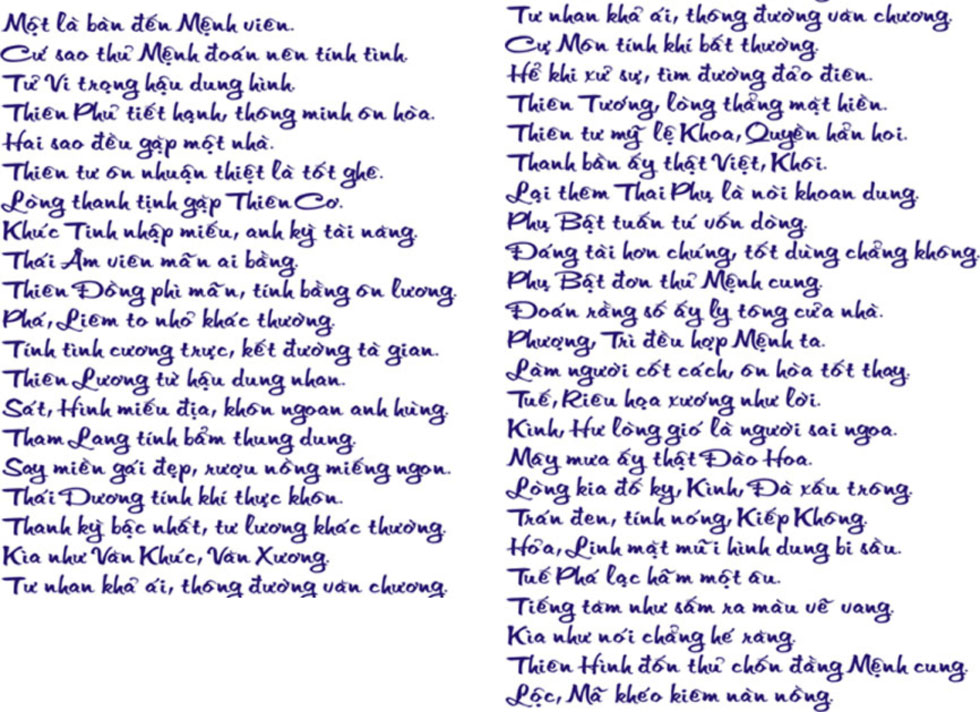 Một là bàn đến Mệnh viên.
Cứ sao thủ Mệnh đoán nên tính tình.
Tử Vi trọng hậu dung hình.
Thiên Phủ tiết hạnh, thông minh ôn hòa.
Hai sao đều gặp một nhà.
Thiên tư ôn nhuận thiệt là tốt ghê.
Lòng thanh tịnh gặp Thiên Cơ.
Khúc Tinh nhập miếu, anh kỳ tài năng.
Thái Âm viên mãn ai bằng.
Thiên Đồng phì mãn, tính bằng ôn lương.
Phá, Liêm to nhỏ khác thường.
Tính tình cương trực, kết đường tà gian.
Thiên Lương từ hậu dung nhan.
Sát, Hình miếu địa, khôn ngoan anh hùng.
Tham Lang tính bẩm thung dung.
Say miền gái đẹp, rượu nồng miếng ngon.
Thái Dương tính khí thực khôn.
Thanh kỳ bậc nhất, tư lương khác thường.
Kìa như Văn Khúc, Văn Xương.
Tư nhan khả ái, thông đường văn chương.
Tư nhan khả ái, thông đường văn chương.
Cự Môn tính khí bất thường.
Hể khi xử sự, tìm đường đảo điên.
Thiên Tướng, lòng thẳng mặt hiền.
Thiên tư mỹ lệ Khoa, Quyền hẳn hoi.
Thanh bần ấy thật Việt, Khôi.
Lại thêm Thai Phụ là nòi khoan dung.
Phụ Bật tuấn tú vốn dòng.
Đáng tài hơn chúng, tốt dùng chẳng không.
Phụ Bật đơn thủ Mệnh cung.
Đoán rằng số ấy ly tông cửa nhà.
Phượng, Trì đều hợp Mệnh ta.
Làm người cốt cách, ôn hòa tốt thay.
Tuế, Riêu họa xướng như lời.
Kình, Hư lòng gió là người sai ngoa.
Mây mưa ấy thật Đào Hoa.
Lòng kia đố kỵ, Kình, Đà xấu trông.
Trán đen, tính nóng, Kiếp Không.
Hỏa, Linh mặt mũi hình dung bi sầu.
Tuế Phá lạc hãm một âu.
Tiếng tăm như sấm ra màu vẽ vang.
Kìa như nói chẳng hé răng.
Thiên Hình đốn thủ chốn đằng Mệnh cung.
Lộc, Mã khéo kiêm nàn nồng.